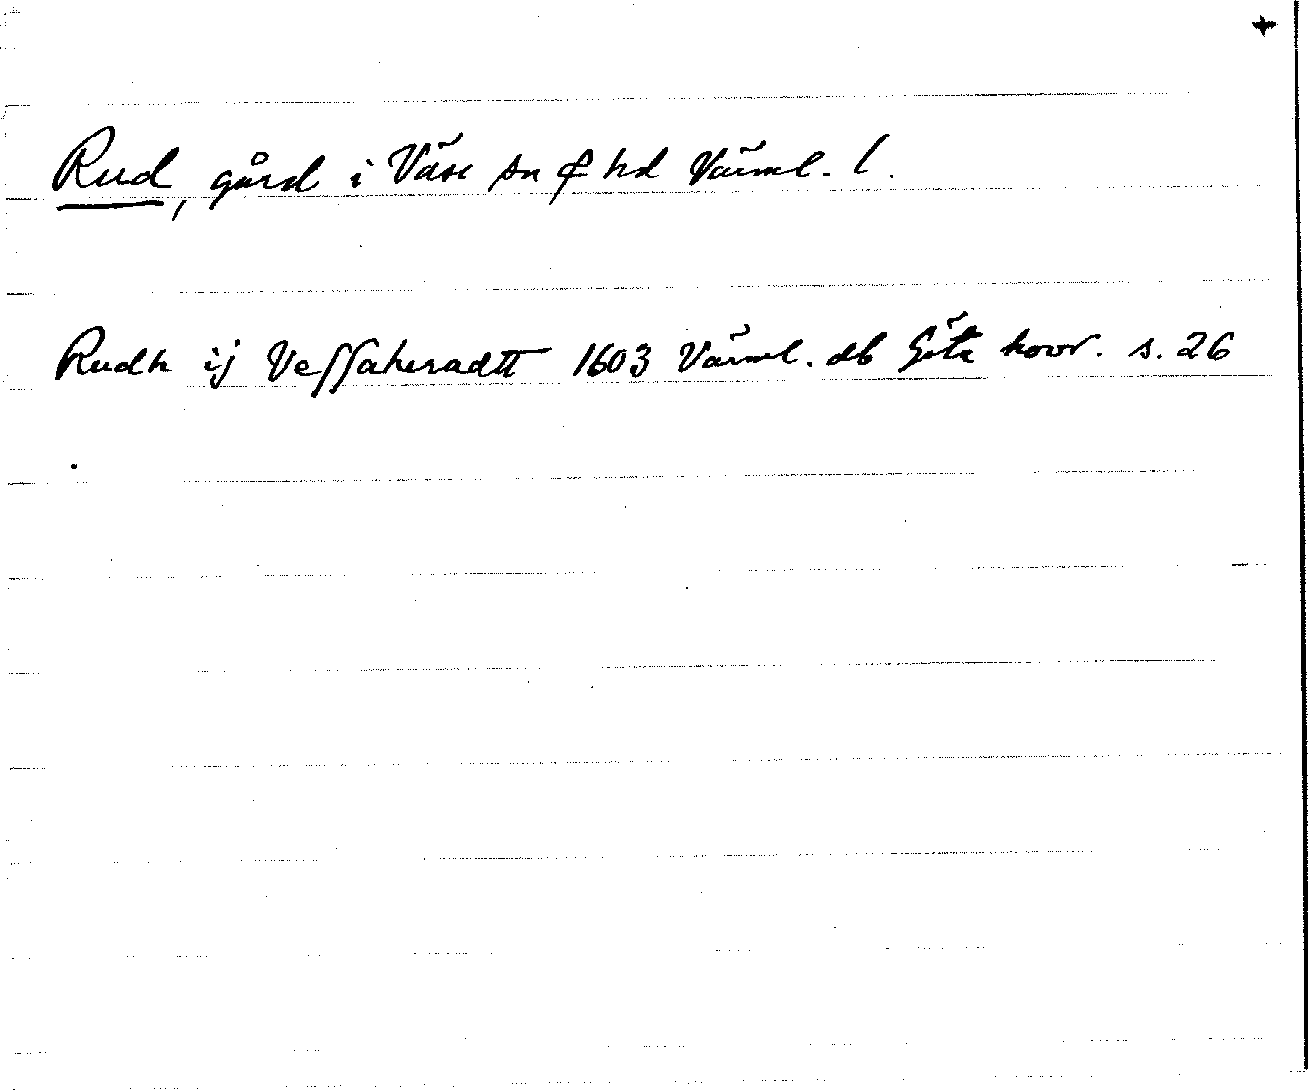 Rud, gård i Väse sn & hd Värml. l.
Rudh ij Vessaheradtt 1603 Värml. db Göta hovr. s. 26